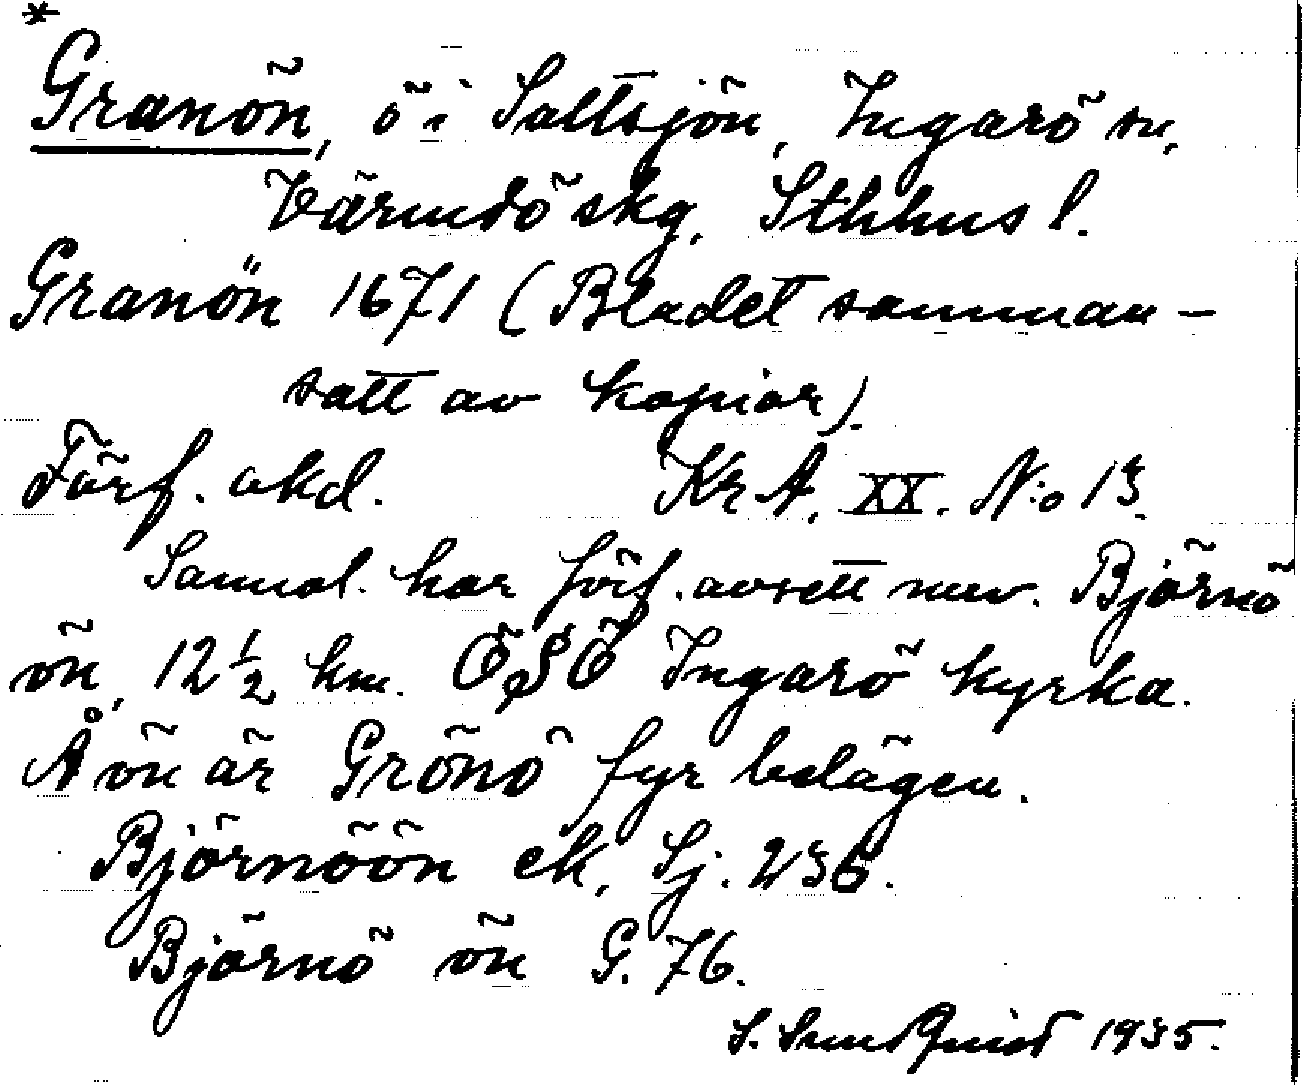 *
Granön, ö i Saltsjön, Ingarö sn,
Värmdö skg, Sthlms l.
Granön 1671 (Bladet samman-
satt av kopior).
Förf. okd. Kr A, XX. N:o 13.
Sannol. har förf. avsett nuv. Björnö
ön, 12 1/2 km. ÖSÖ Ingarö kyrka.
Å ön är Grönö fyr belägen.
Björnöön ek, Sj. 236.
Björnö ön G. 76.
S. Sundquist 1935.